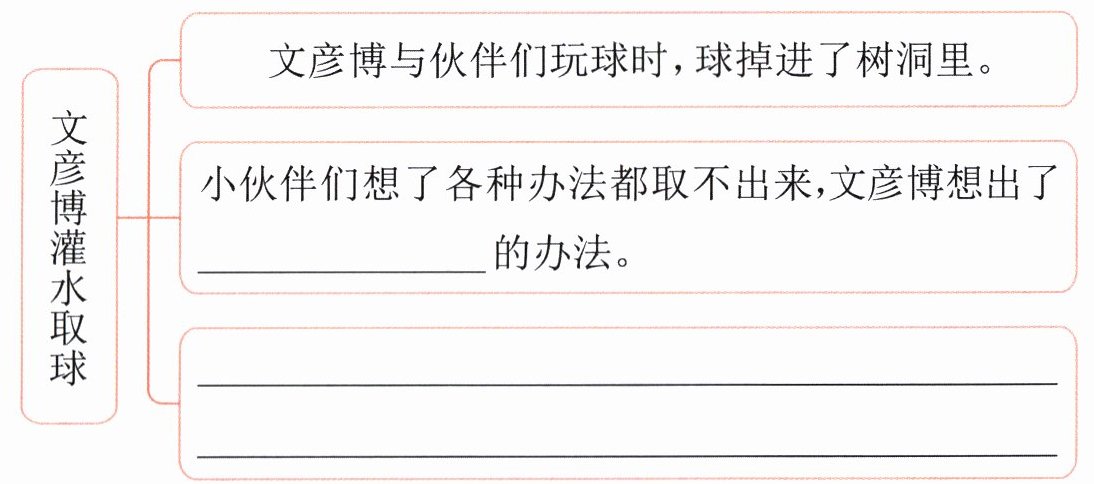 文彦博灌水取球
文彦博与伙伴们玩球时，球掉进了树洞里。
小伙伴们想了各种办法都取不出来，文彦博想出了
的办法。